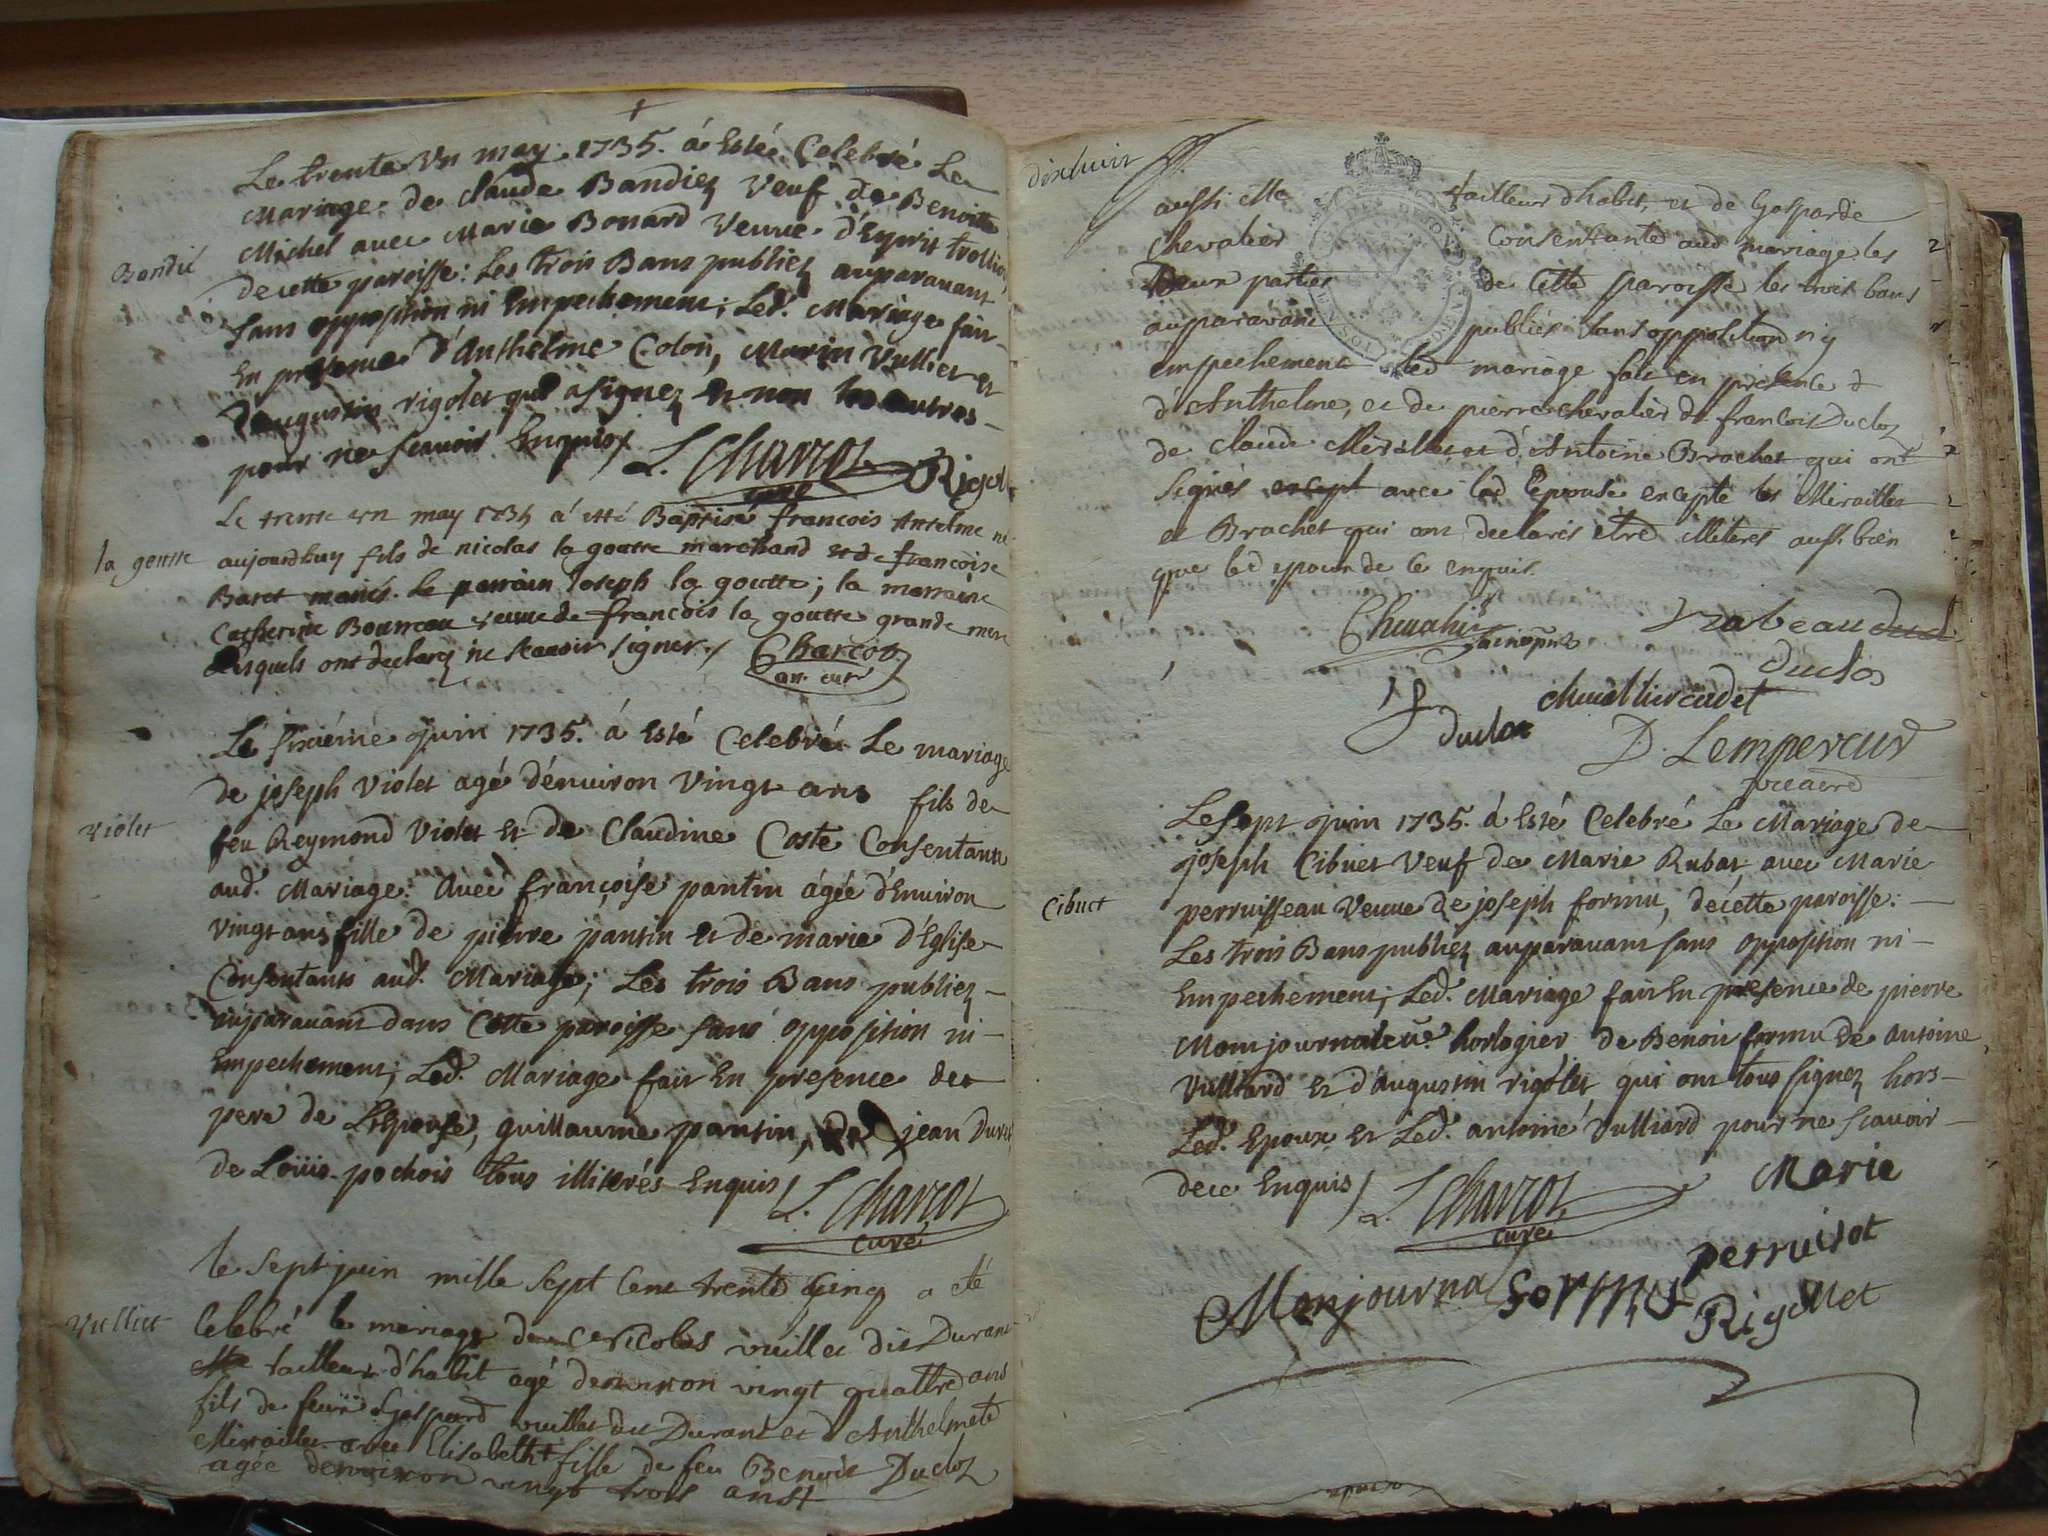 Le trente Vn may 1735. á Esté Celebré Le
Mariage de claude Bandiez Veuf de Benoitte
Bandié
Michel avec Marie Bonard Veuve d'Esprit trollier
de cette paroisse: Les trois Bans publiez auparavant
sans opposition ni Empechement; Led. Mariage fait
En presence d'Anthelme Colon, Marin Vulliet et
d'augustin rigolet qui a signez et non les autres
pour ne scavoir Enquis
L. Charcot curé
Rigol
Le trente un may 1735 á etté Baptisé francois Anselme né
la goutte
aujourdhuy fils de nicolas la goutte marchand et de francoise
Baret mariés. Le parrain Joseph la goutte; la marraine
Catherine veuve de francois la goutte grande mere
Lesquels ont declarez ne scavoir signer
Charcot
curé
Le sixiéme juin 1735. á Esté Celebré Le mariage
de joseph Violet agé d'énuiron vingt ans fils de
Violet
feu Reymond Violet Et de Claudine Coste Consentante
aud. Mariage: Avec françoise pantin ágée d'Enuiron
vingt ans fille de pierre pantin Et de marie d'Eglise
Consentants aud. Mariage; Les trois Bans publiez
auparavant dans Cette paroisse sans opposition ni
Empechement; Led. Mariage fait En presence de
pere de L'Epouse, guillaume pantin, jean
de Loüis pochois tous illiterés Enquis
L. Charcot
curé
le sept juin mille sept Cent trente Cinq a eté
Vulliet
Celebré le mariage de Nicolas vuillet dit Durant
tailleur d'habit agé denuiron vingt quattre ans
fils de feu Gaspard vuillet dit Durant et d'Anthelmete
Miraillet avec Elisabeth fille de feu Benoit Ducloz
agée denuiron vingt trois ans
dixhuit
aussi Me tailleur dhabit, et de Gasparde
Chevalier Consentante aud mariage les
Deux parties de Cette paroisse les trois bans
auparavant publiés sans opposition ny
empechement led mariage fait en presence
d'Anthelme, et de pierre chevalier de francois Ducloz
de Claude Miraillet et d'Antoine Brochet qui ont
signés avec led Epouse excepte les Miraillet
et Brochet qui ont declarés étre illiterés aussi bien
que led epoux de ce enquis
nabeau
duclos
duclos
D. Lempereur
vicaire
Le sept juin 1735. á Esté Celebré Le Mariage de
joseph Cibuet Veuf de Marie Rubat avec Marie
Cibuet
perruisseau Veuue de joseph formu, decétte paroisse:
Les trois Bans publiez auparavant sans opposition ni
Empechement; Led. Mariage fait En presence de pierre
Monjournal horlogier de Benoit formu de Antoine
Vulliard Et d'Augustin rigolet qui ont tous signez hors
Led. Epoux Et Led. antoine Vulliard pour ne scavoir
dece Enquis
L. Charcot
curé
Marie
perruirot
Monjournal
formu
Rigollet